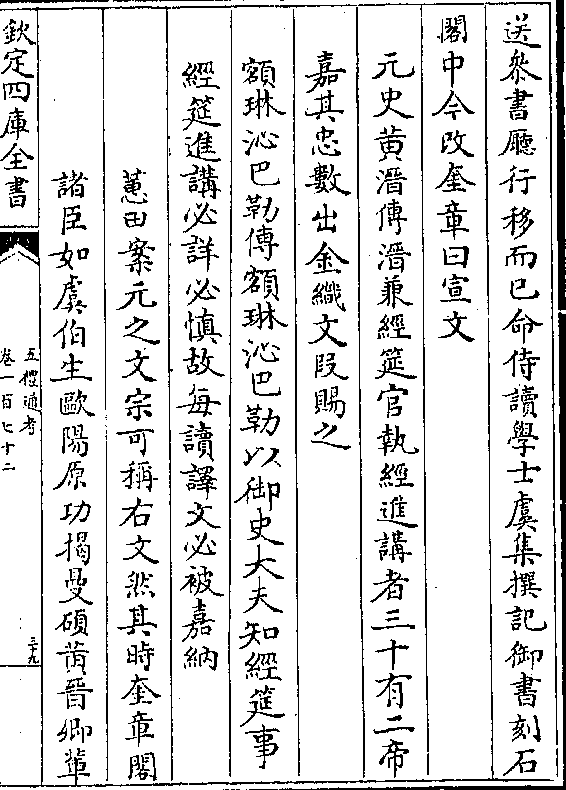 送叅書廳行移而已命侍讀學士虞集撰記御書刻石
閣中今改奎章曰宣文
元史黄溍傳溍兼經筵官執經進講者三十有二帝
嘉其忠數出金織文段賜之
額琳沁巴勒傳額琳沁巴勒以御史大夫知經筵事
經筵進講必詳必慎故每讀譯文必被嘉納
蕙田案元之文宗可稱右文然其時奎章閣
諸臣如虞伯生歐陽原功揭曼碩黄晉卿輩
欽定四庫全書
五禮通考
卷一百七十二
三十九